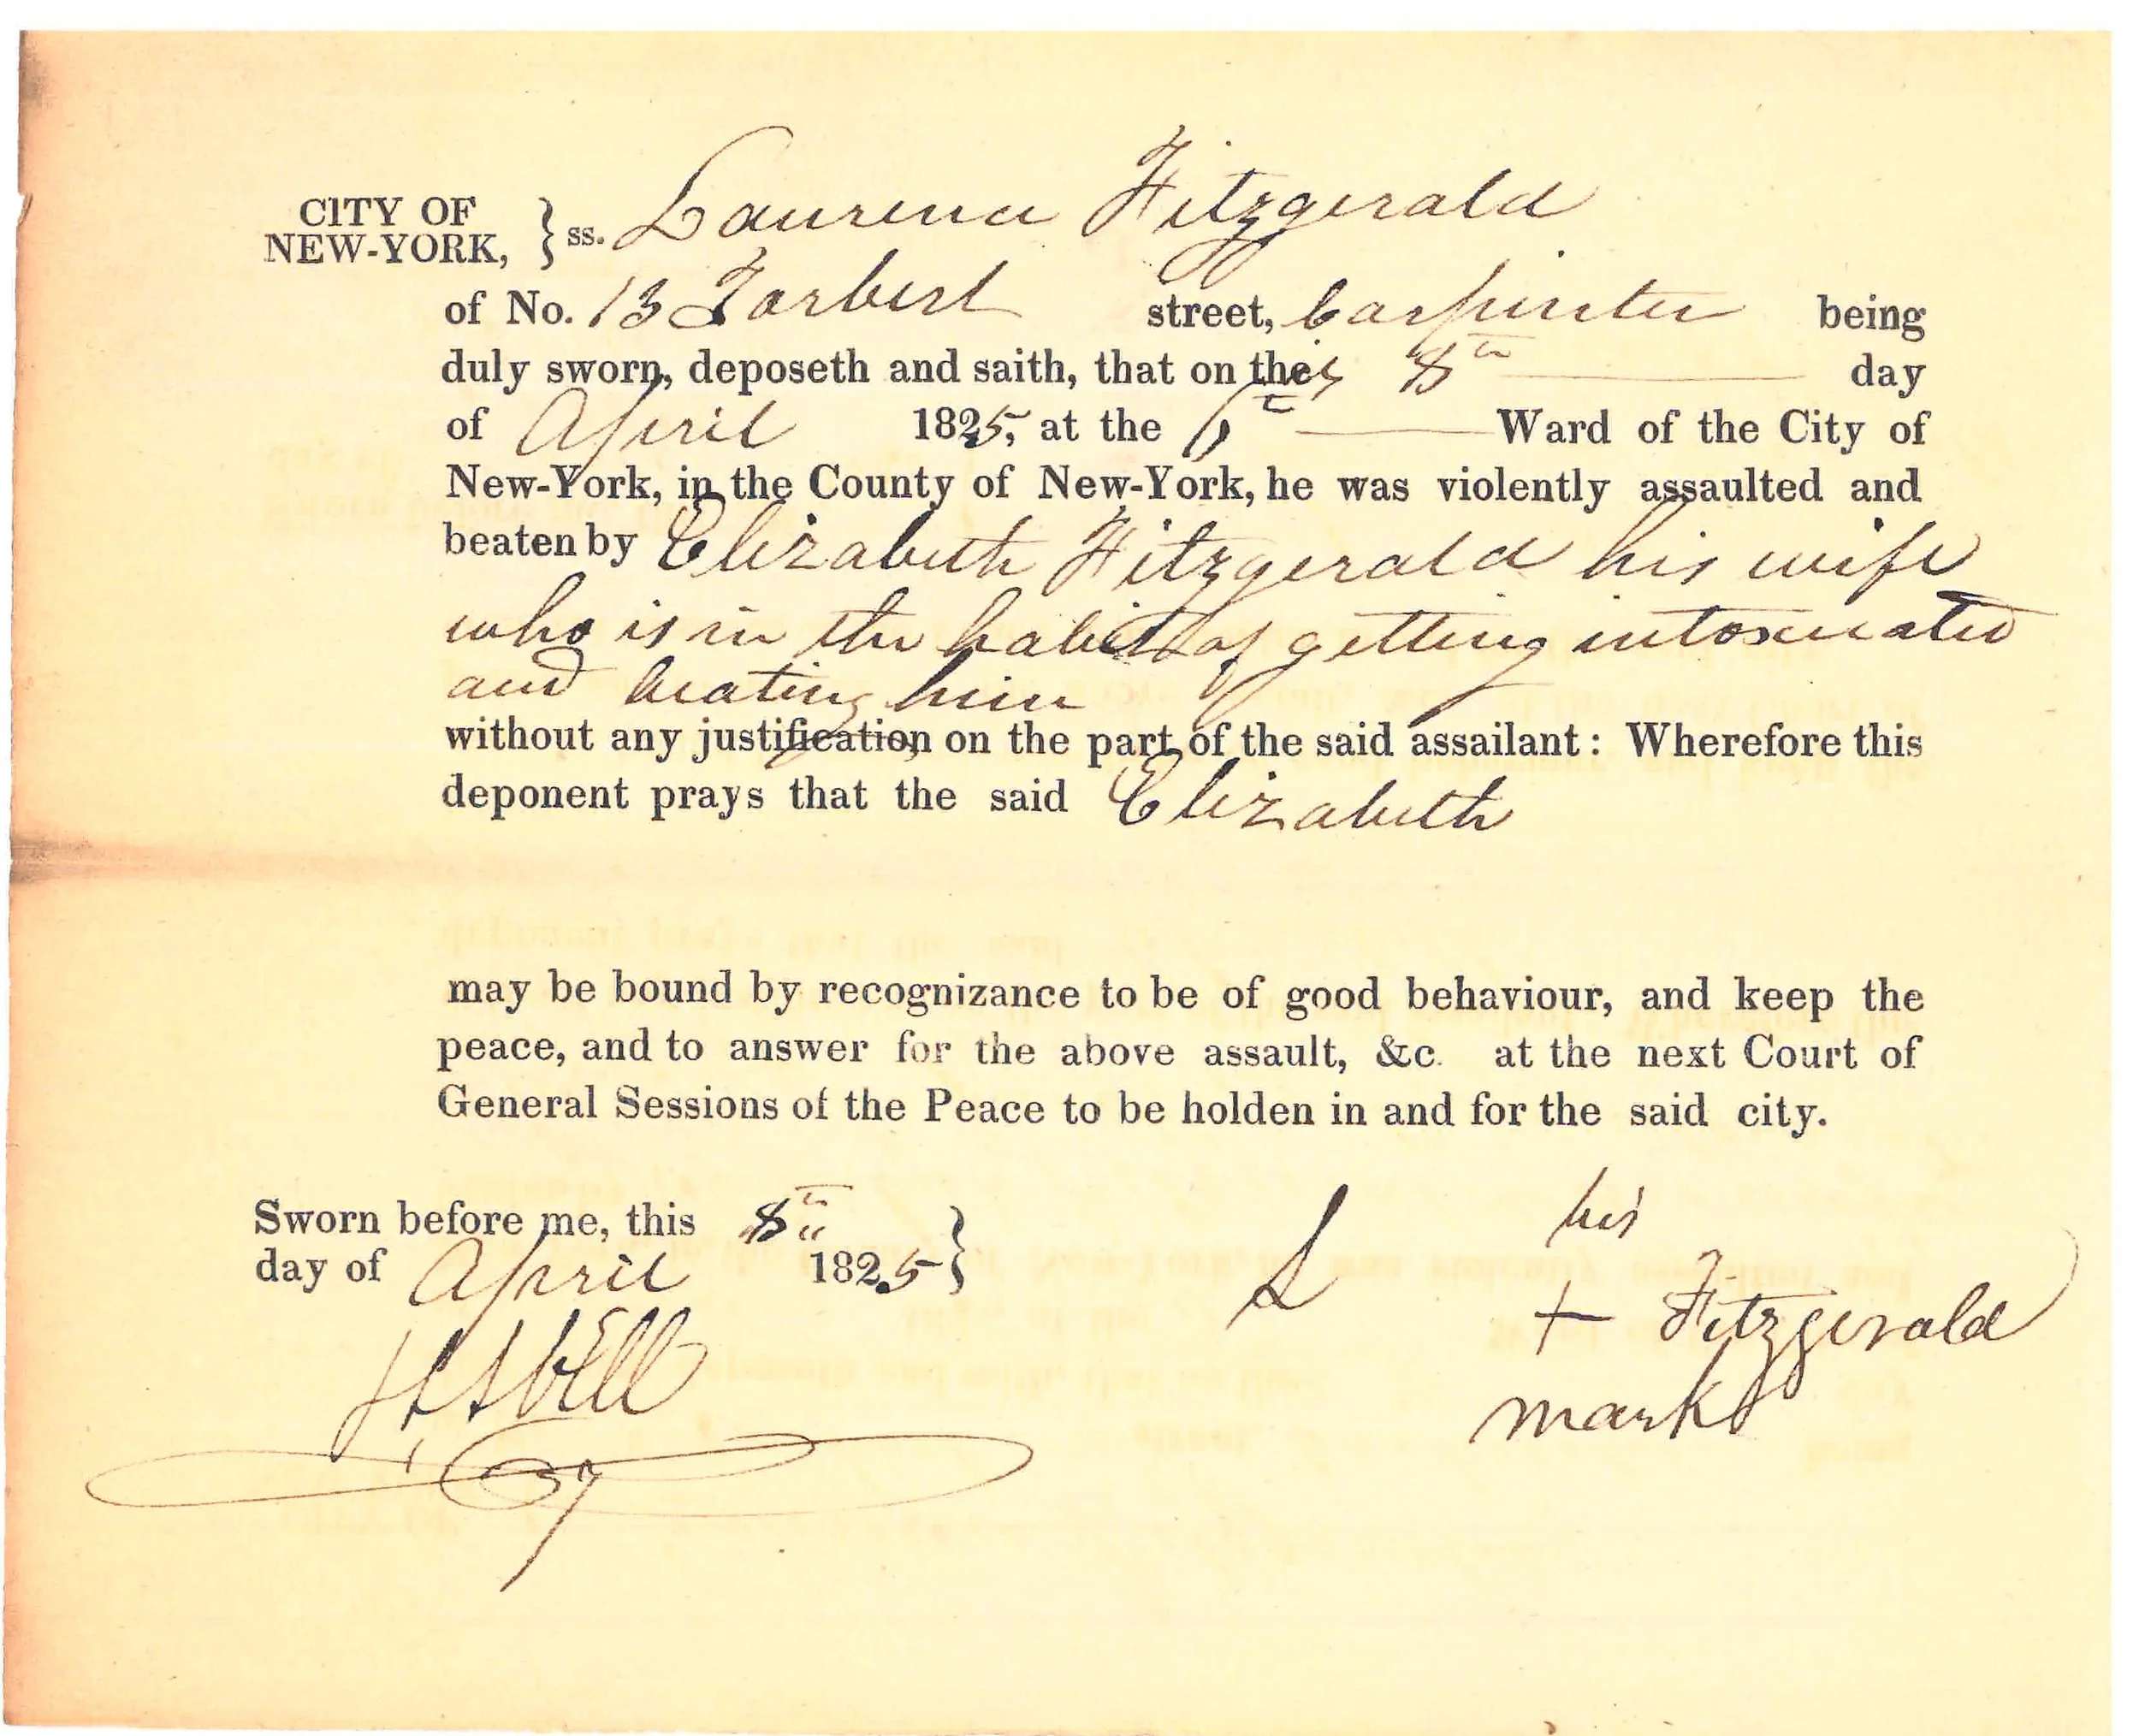 CITY OF
NEW-YORK, } ss. Laurence Fitzgerald
of No. 13 Forbest street, Carpenter being
duly sworn, deposeth and saith, that on the 8th day
of April 1825, at the 6th Ward of the City of
New-York, in the County of New-York, he was violently assaulted and
beaten by Elizabeth Fitzgerald his wife
who is in the habit of getting intoxicated
and beating him
without any justification on the part of the said assailant: Wherefore this
deponent prays that the said Elizabeth
may be bound by recognizance to be of good behaviour, and keep the
peace, and to answer for the above assault, &c. at the next Court of
General Sessions of the Peace to be holden in and for the said city.
Sworn before me, this 8th
day of April 1825 }
his
L + Fitzgerald
mark